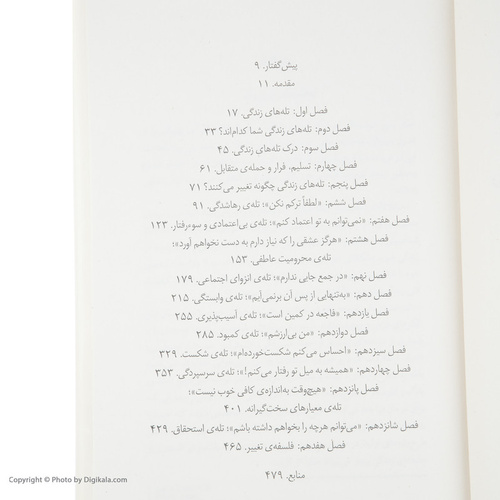 پیش‌گفتار. ۹
مقدمه. ۱۱
فصل اول: تله‌های زندگی. ۱۷
فصل دوم: تله‌های زندگی شما کدام‌اند؟ ۳۳
فصل سوم: درک تله‌های زندگی. ۴۵
فصل چهارم: تسلیم، فرار و حمله‌ی متقابل. ۶۱
فصل پنجم: تله‌های زندگی چگونه تغییر می‌کنند؟ ۷۱
فصل ششم: «لطفاً ترکم نکن»؛ تله‌ی رهاشدگی. ۹۱
فصل هفتم: «نمی‌توانم به تو اعتماد کنم»؛ تله‌ی بی‌اعتمادی و سوءرفتار. ۱۲۳
فصل هشتم: «هرگز عشقی را که نیاز دارم به دست نخواهم آورد»؛
تله‌ی محرومیت عاطفی. ۱۵۳
فصل نهم: «در جمع جایی ندارم»؛ تله‌ی انزوای اجتماعی. ۱۷۹
فصل دهم: «به‌تنهایی از پس آن برنمی‌آیم»؛ تله‌ی وابستگی. ۲۱۵
فصل یازدهم: «فاجعه در کمین است»؛ تله‌ی آسیب‌پذیری. ۲۵۵
فصل دوازدهم: «من بی‌ارزشم»؛ تله‌ی کمبود. ۲۸۵
فصل سیزدهم: «احساس می‌کنم شکست‌خورده‌ام»؛ تله‌ی شکست. ۳۲۹
فصل چهاردهم: «همیشه به میل تو رفتار می‌کنم!»؛ تله‌ی سرسپردگی. ۳۵۳
فصل پانزدهم: «هیچ‌وقت به‌اندازه‌ی کافی خوب نیست»؛
تله‌ی معیارهای سخت‌گیرانه. ۴۰۱
فصل شانزدهم: «می‌توانم هرچه را بخواهم داشته باشم»؛ تله‌ی استحقاق. ۴۲۹
فصل هفدهم: فلسفه‌ی تغییر. ۴۶۵
منابع. ۴۷۹
Copyright © Photo by Digikala.com